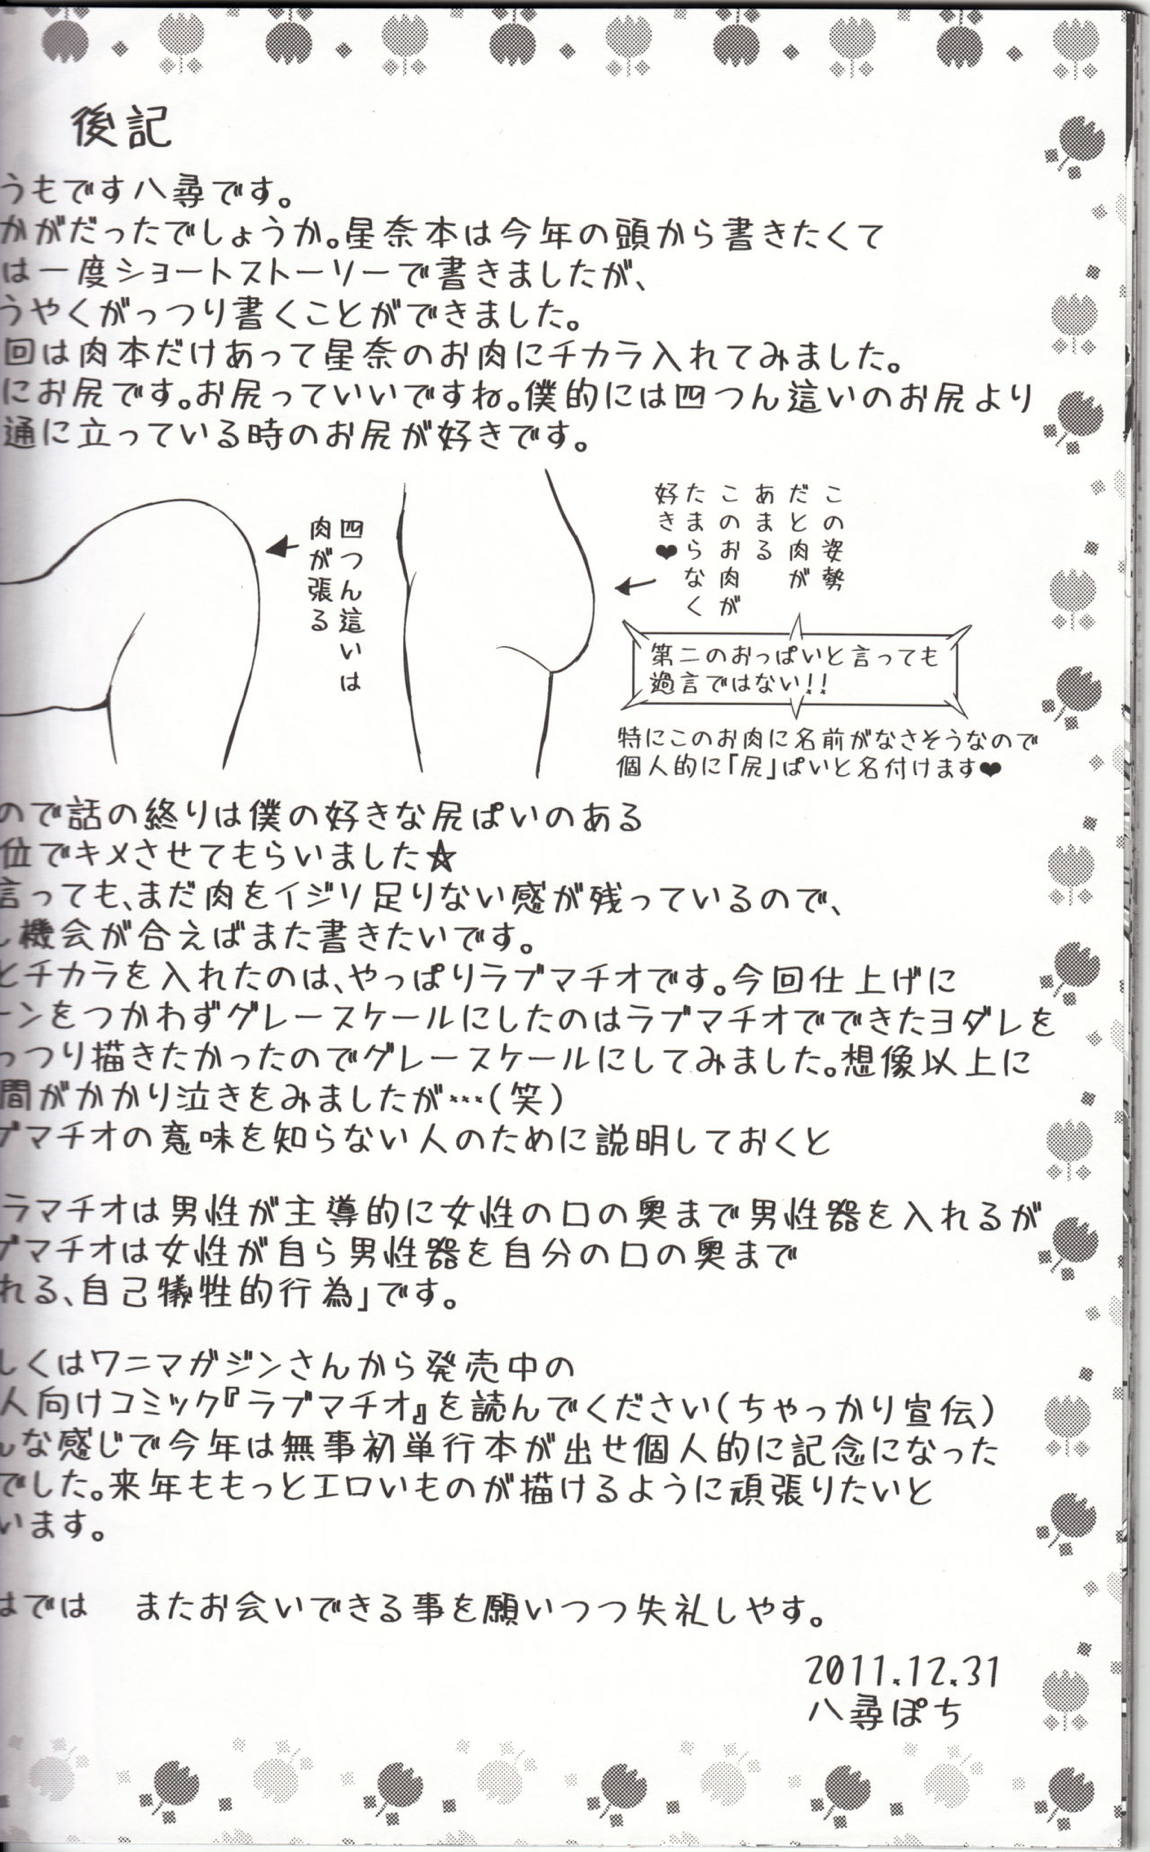 後記
うもです八尋です。
かがだったでしょうか。星奈本は今年の頭から書きたくて
は一度ショートストーリーで書きましたが、
うやくがっつり書くことができました。
回は肉本だけあって星奈のお肉にチカラ入れてみました。
にお尻です。お尻っていいですね。僕的には四つん這いのお尻より
通に立っている時のお尻が好きです。
四つん這いは
肉が張る
この姿勢
だと肉が
あまる
このお肉が
たまらなく
好き❤
第二のおっぱいと言っても
過言ではない!!
特にこのお肉に名前がなさそうなので
個人的に「尻」ぱいと名付けます❤
ので話の終りは僕の好きな尻ぱいのある
位でキメさせてもらいました☆
言っても、まだ肉をイジリ足りない感が残っているので、
し機会が合えばまた書きたいです。
とチカラを入れたのは、やっぱりラブマチオです。今回仕上げに
ーンをつかわずグレースケールにしたのはラブマチオでできたヨダレを
っつり描きたかったのでグレースケールにしてみました。想像以上に
間がかかり泣きをみましたが…(笑)
ブマチオの意味を知らない人のために説明しておくと
ラマチオは男性が主導的に女性の口の奥まで男性器を入れるが
ブマチオは女性が自ら男性器を自分の口の奥まで
れる、自己犠牲的行為」です。
しくはワニマガジンさんから発売中の
人向けコミック『ラブマチオ』を読んでください(ちゃっかり宣伝)
んな感じで今年は無事初単行本が出せ個人的に記念になった
でした。来年ももっとエロいものが描けるように頑張りたいと
います。
はでは　またお会いできる事を願いつつ失礼しやす。
2011.12.31
八尋ぽち